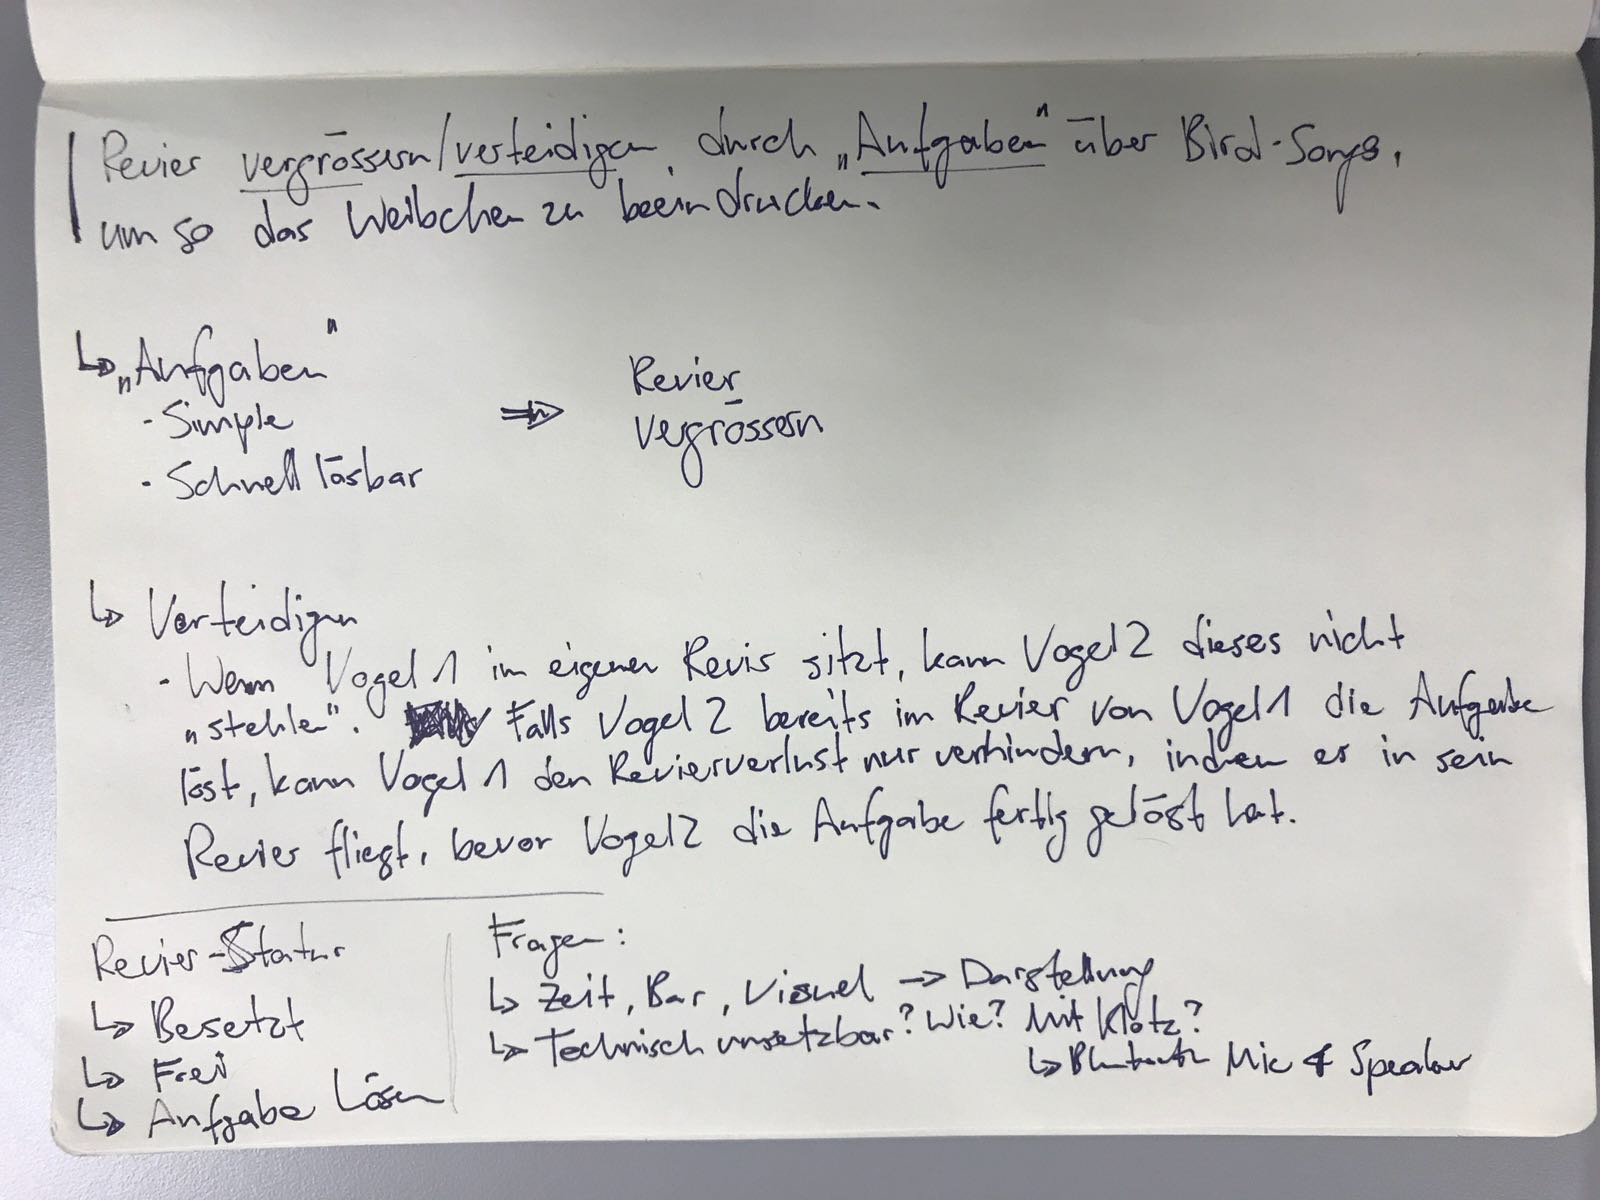 Revier vergrössern/verteidigen durch „Aufgaben" über Bird-Songs,
um so das Weibchen zu beeindrucken.
↳ „Aufgaben"
· Simple
· Schnell lösbar
⇒ Revier
vergrössern
↳ Verteidigen
· Wenn Vogel 1 im eigenen Revier sitzt, kann Vogel 2 dieses nicht
„stehlen". Falls Vogel 2 bereits im Revier von Vogel 1 die Aufgabe
löst, kann Vogel 1 den Revierverlust nur verhindern, indem es in sein
Revier fliegt, bevor Vogel 2 die Aufgabe fertig gelöst hat.
Revier-Status
↳ Besetzt
↳ Frei
↳ Aufgabe lösen
Fragen:
↳ Zeit, Bar, Visuel → Darstellung
↳ Technisch umsetzbar? Wie? Mit Klotz?
↳ Mic & Speaker